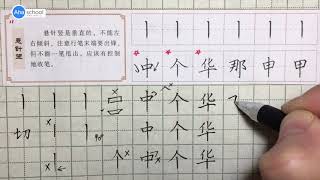 Aha school
悬针竖
悬针竖是垂直的，不能左
右倾斜，注意行笔末端要出锋，
但不能一笔甩出，应该有控制
地收笔。
中 个 华 那 申 甲
中 个 华
切 中 个 华
个 中 个 华